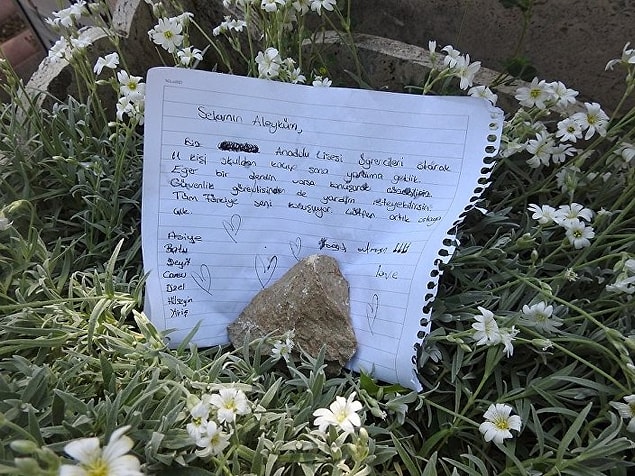 Selamın Aleyküm,
Biz Anadolu Lisesi öğrencileri olarak
11 kişi okuldan kaçıp sana yardıma geldik.
Eğer bir derdin varsa konuşarak
Güvenlik görevlisinden de yardım isteyebilirsin.
Tüm Türkiye seni konuşuyor. Lütfen artık ortaya
çık.
Berfu
Ceren
Özel
Hüseyin
love